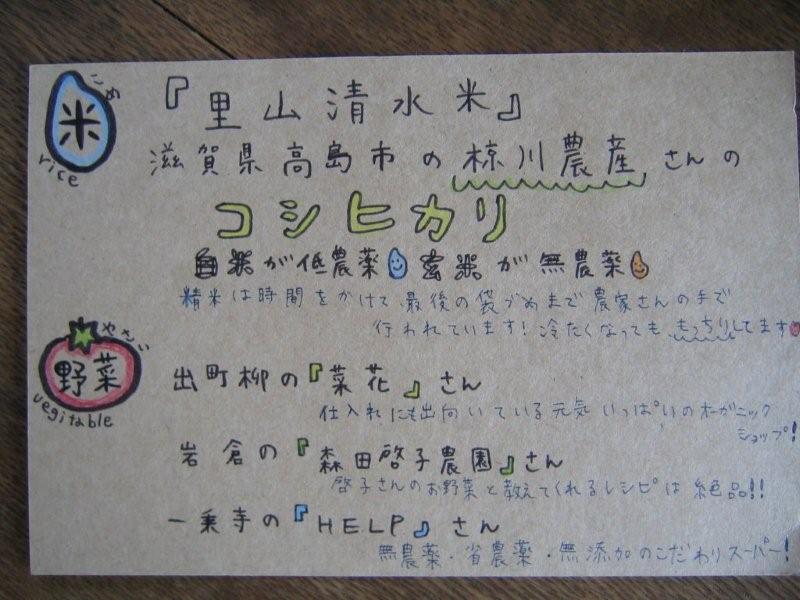 こめ
米
rice
『里山清水米』
滋賀県高島市の椋川農産さんの
コシヒカリ
白米が低農薬 玄米が無農薬
精米は時間をかけて、最後の袋づめまで農家さんの手で
行われています!冷たくなってももっちりしてます
やさい
野菜
vegitable
出町柳の『菜花』さん
仕入れにも出向いている元気いっぱいのオーガニック
ショップ!
岩倉の『森田啓子農園』さん
啓子さんのお野菜と教えてくれるレシピは絶品!!
一乗寺の『HELP』さん
無農薬・省農薬・無添加のこだわりスーパー!